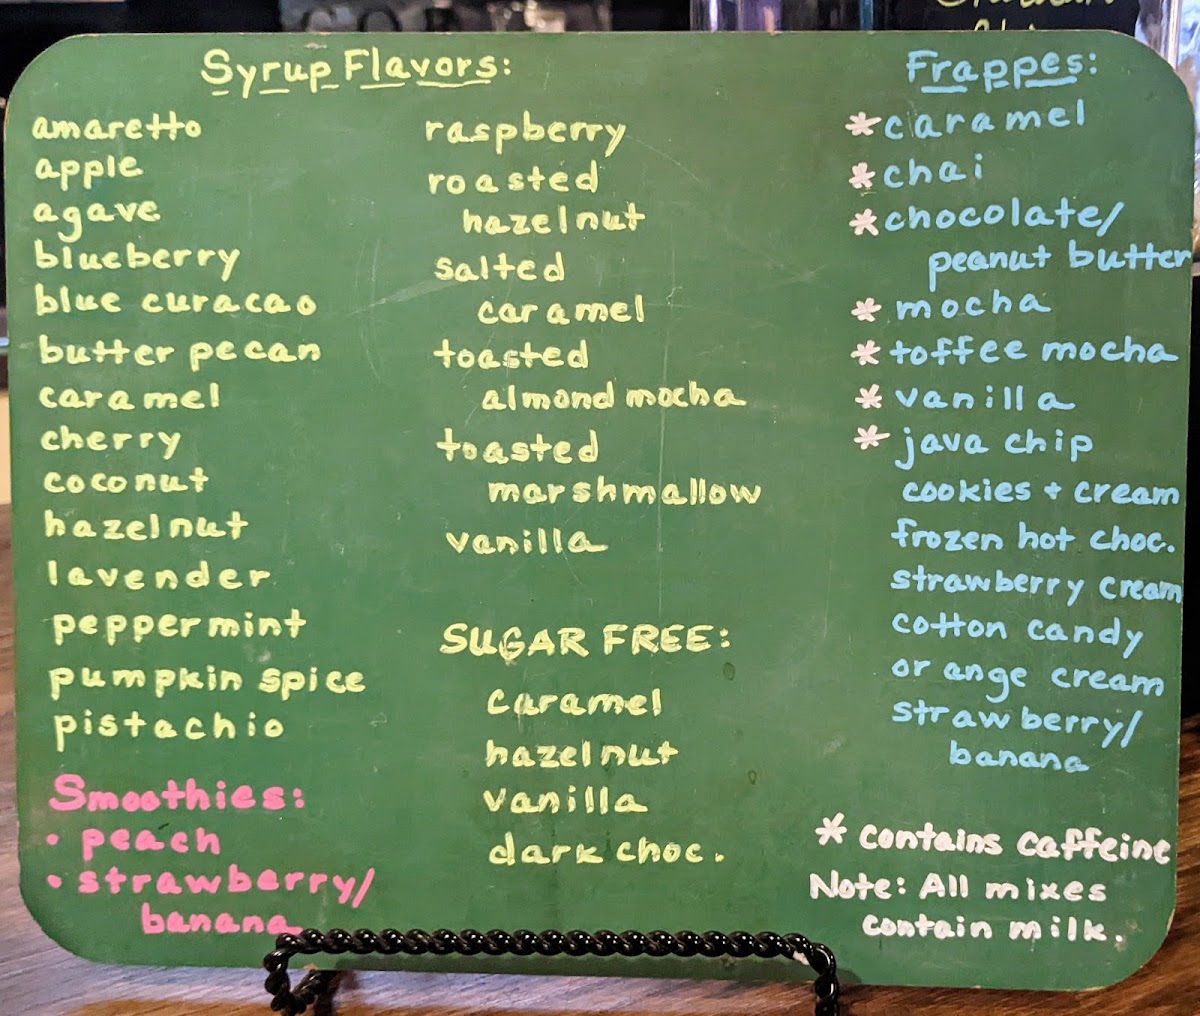 Syrup Flavors:
amaretto
apple
agave
blueberry
blue curacao
butter pecan
caramel
cherry
coconut
hazelnut
lavender
peppermint
pumpkin spice
pistachio
Smoothies:
• peach
• strawberry/
banana
raspberry
roasted
hazelnut
salted
caramel
toasted
almond mocha
toasted
marshmallow
vanilla
SUGAR FREE:
caramel
hazelnut
vanilla
dark choc.
Frappes:
* caramel
* chai
* chocolate/
peanut butter
* mocha
* toffee mocha
* vanilla
* java chip
cookies + cream
frozen hot choc.
strawberry cream
cotton candy
orange cream
strawberry/
banana
* contains caffeine
Note: All mixes
contain milk.